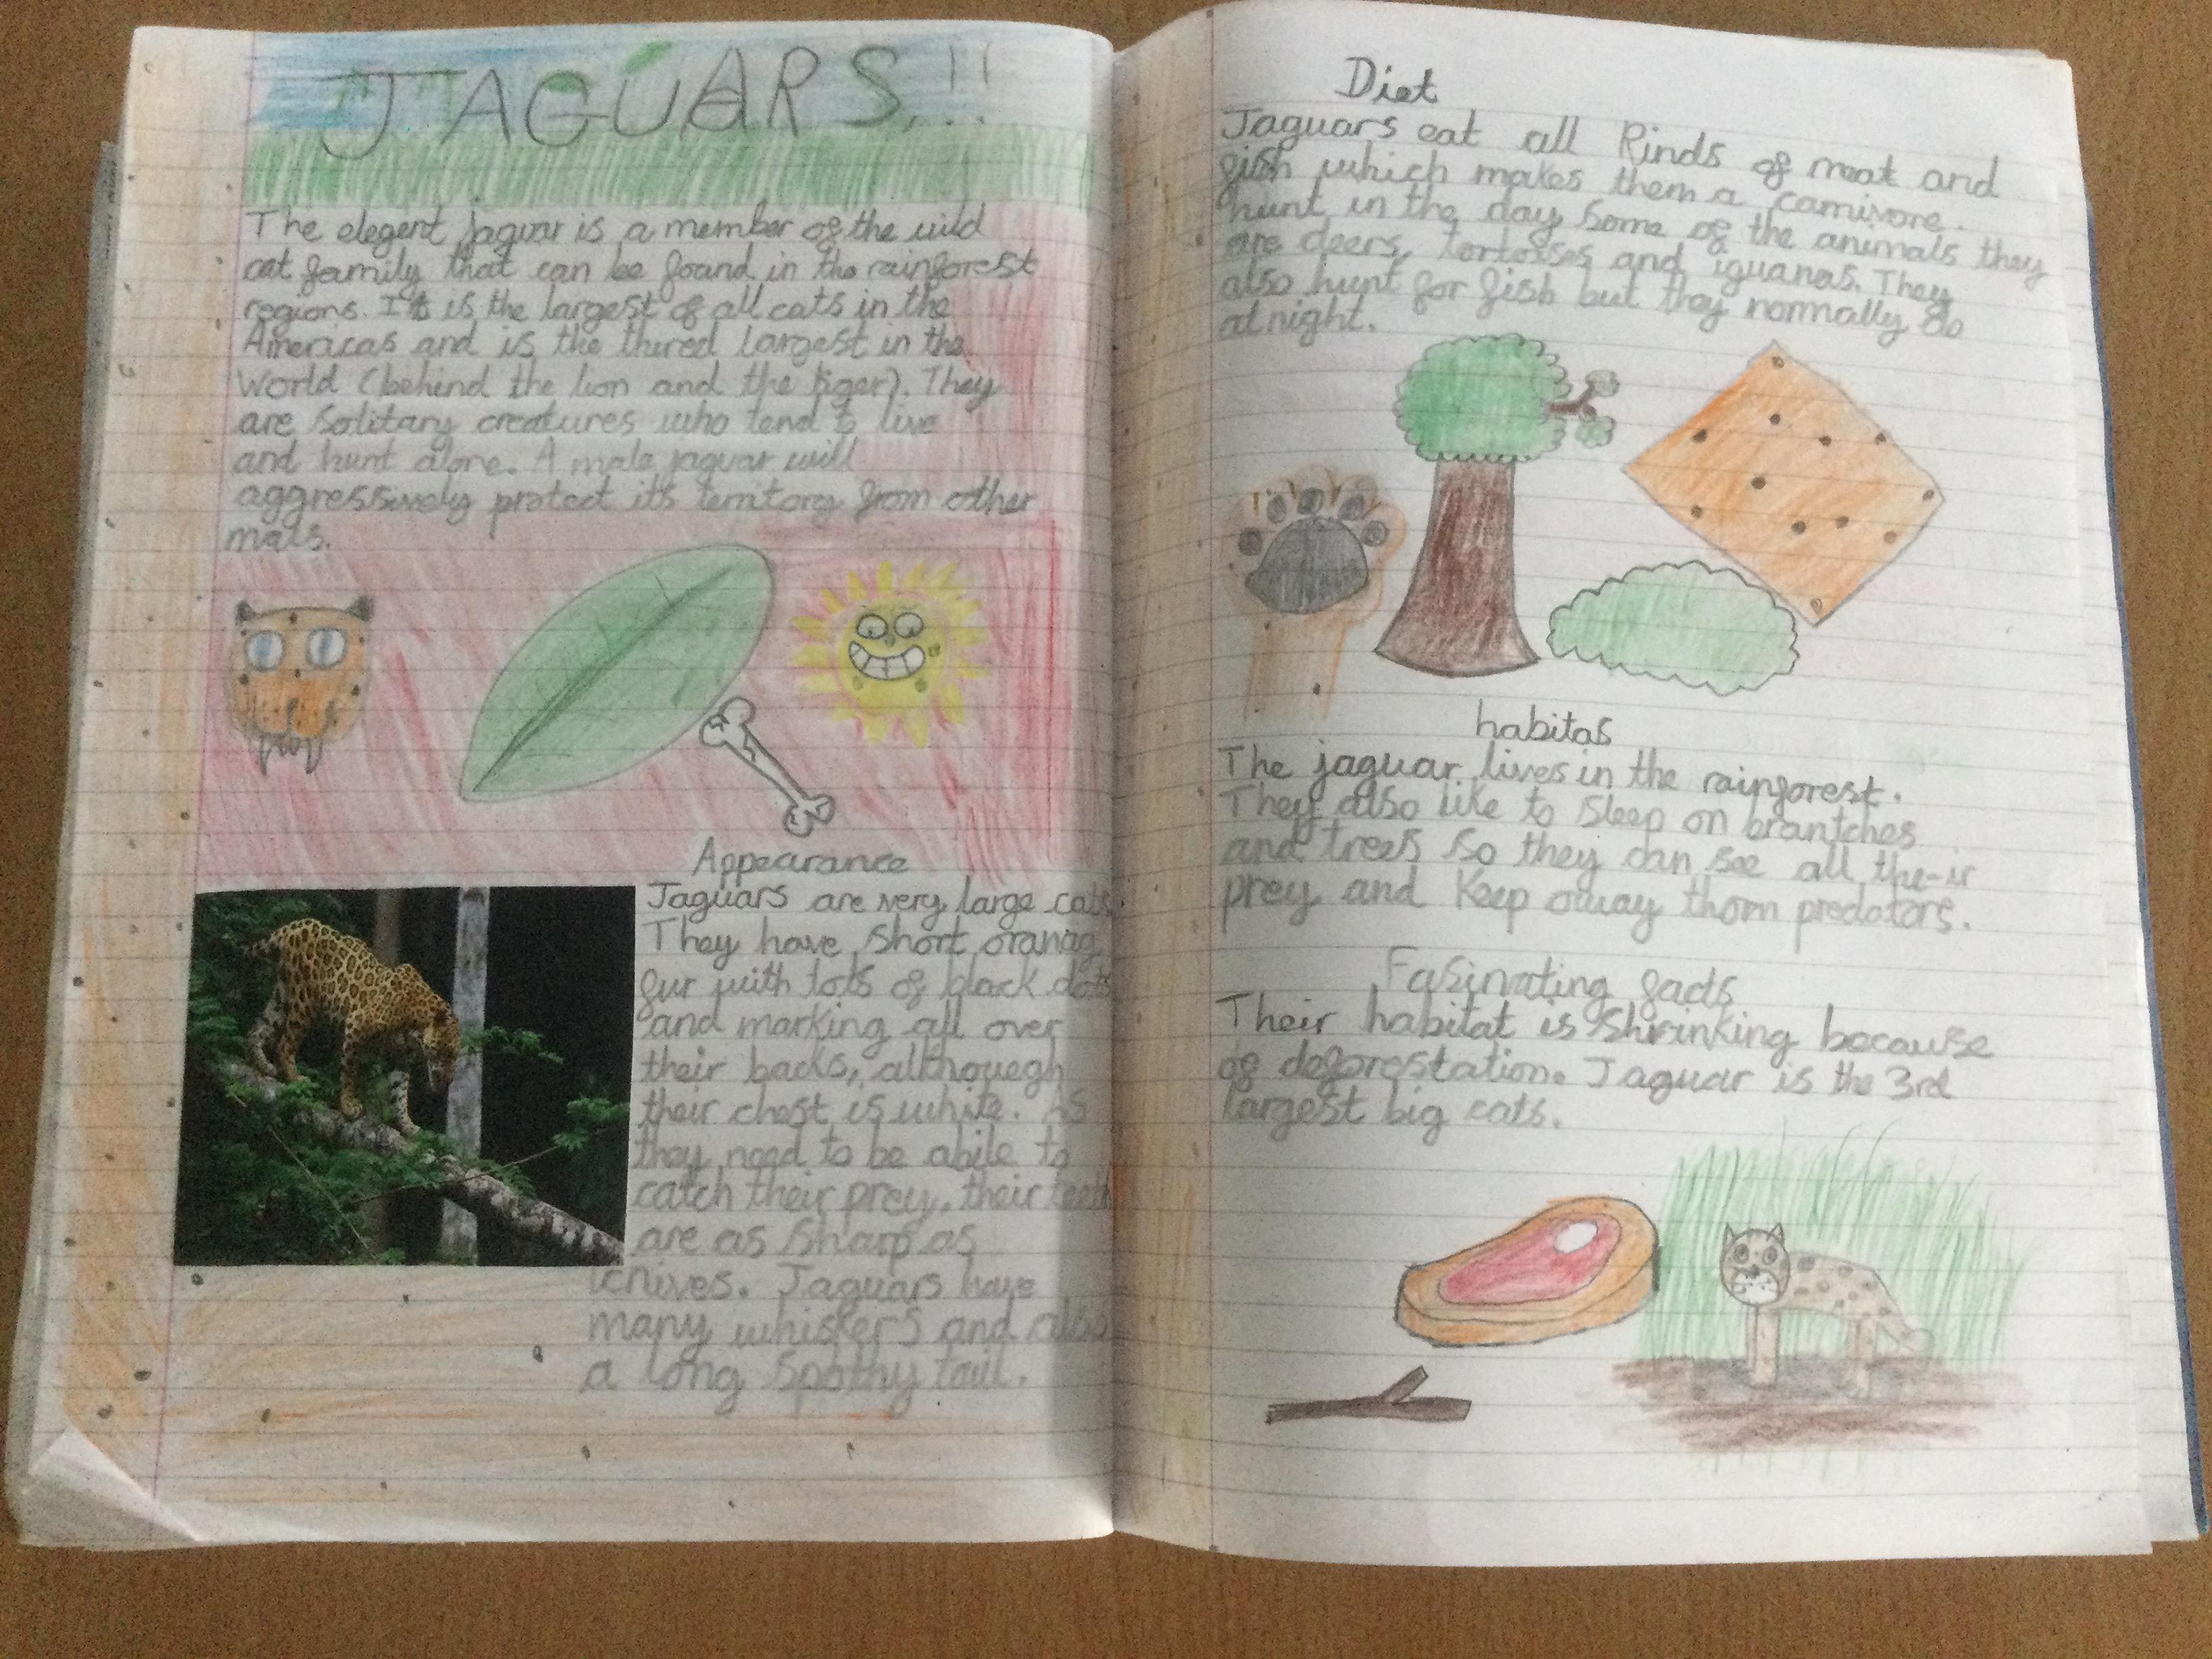 JAGUARS!!
The elegent jaguar is a member of the wild
cat family that can be found in the rainforest
regions. It is the largest of all cats in the
Americas and is the thired largest in the
World (behind the lion and the tiger). They
are solitary creatures who tend to live
and hunt alone. A male jaguar will
aggressively protect its territory from other
mals.
Appearance
Jaguars are very large cats
They have short oranag
fur with lots of black dots
and marking all over
their backs, althouegh
their chest is white. As
they need to be abile to
catch their prey, their teeth
are as sharp as
knives. Jaguars have
many whiskers and also
a long spothy tail.
Diet
Jaguars eat all kinds of meat and
fish which makes them a carnivore.
hunt in the day some of the animals they
are deers, tortoises and iguanas. They
also hunt for fish but they normally do
at night.
habitas
The jaguar lives in the rainforest.
They also like to sleep on brantches
and trees so they can see all the-ir
prey and keep away thom predators.
Fasinating facts
Their habitat is shrinking because
of deforestation. Jaguar is the 3rd
largest big cats.